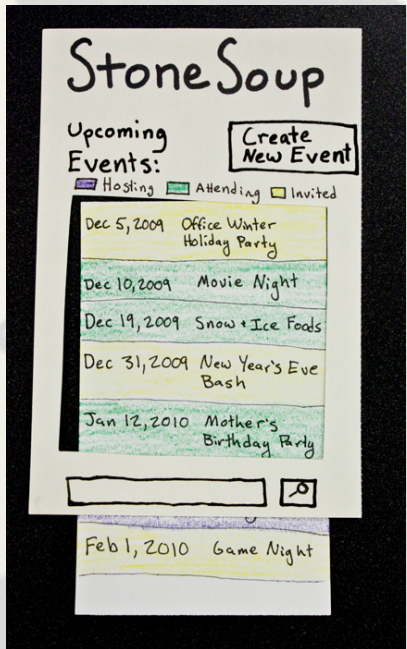 StoneSoup
Upcoming
Events:
Create
New Event
Hosting Attending Invited
Dec 5, 2009 Office Winter
Holiday Party
Dec 10, 2009 Movie Night
Dec 19, 2009 Snow + Ice Foods
Dec 31, 2009 New Year's Eve
Bash
Jan 12, 2010 Mother's
Birthday Party
Feb 1, 2010 Game Night